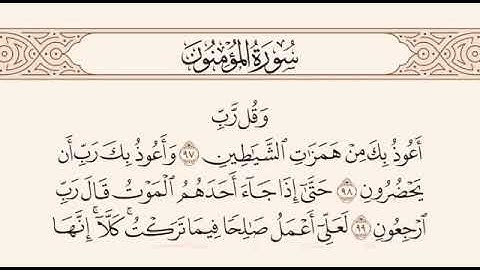 سُورَةُ الْمُؤْمِنُونَ
وَقُل رَّبِّ
أَعُوذُ بِكَ مِنْ هَمَزَاتِ الشَّيَاطِينِ ٩٧ وَأَعُوذُ بِكَ رَبِّ أَن
يَحْضُرُونِ ٩٨ حَتَّىٰ إِذَا جَاءَ أَحَدَهُمُ الْمَوْتُ قَالَ رَبِّ
ارْجِعُونِ ٩٩ لَعَلِّي أَعْمَلُ صَالِحًا فِيمَا تَرَكْتُ ۚ كَلَّا ۚ إِنَّهَا